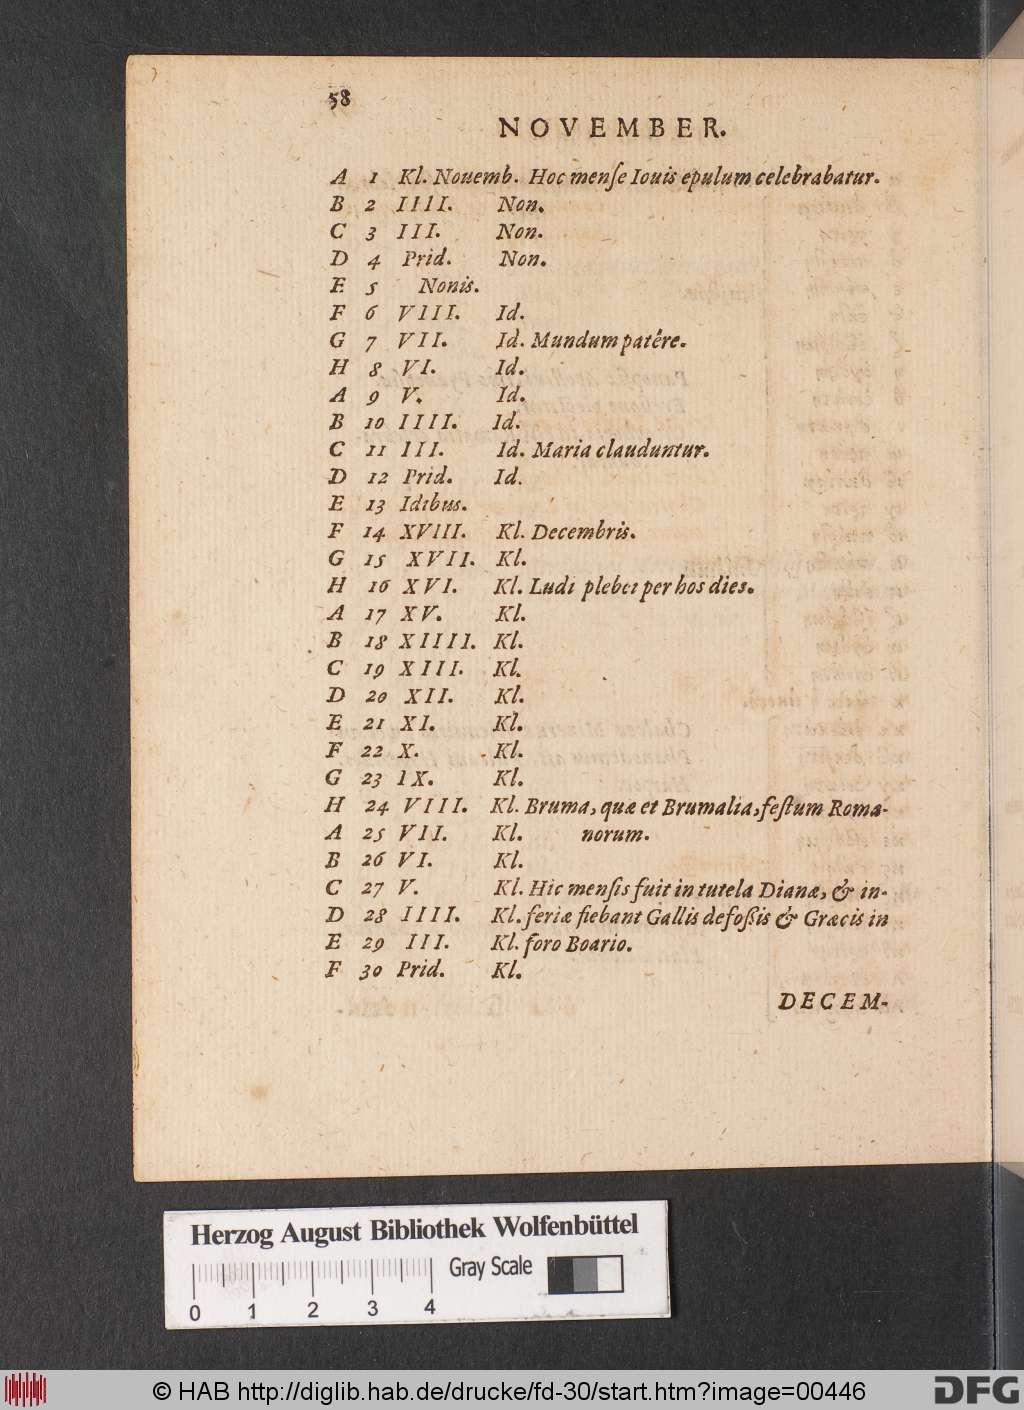 58
NOVEMBER.
A 1 Kl. Nouemb. Hoc menſe Iouis epulum celebrabatur.
B 2 IIII. Non.
C 3 III. Non.
D 4 Prid. Non.
E 5 Nonis.
F 6 VIII. Id.
G 7 VII. Id. Mundum patêre.
H 8 VI. Id.
A 9 V. Id.
B 10 IIII. Id.
C 11 III. Id. Maria clauduntur.
D 12 Prid. Id.
E 13 Idibus.
F 14 XVIII. Kl. Decembris.
G 15 XVII. Kl.
H 16 XVI. Kl. Ludi plebei per hos dies.
A 17 XV. Kl.
B 18 XIIII. Kl.
C 19 XIII. Kl.
D 20 XII. Kl.
E 21 XI. Kl.
F 22 X. Kl.
G 23 IX. Kl.
H 24 VIII. Kl. Bruma, quæ et Brumalia, feſtum Roma-
A 25 VII. Kl. norum.
B 26 VI. Kl.
C 27 V. Kl. Hic menſis fuit in tutela Dianæ, & in-
D 28 IIII. Kl. feriæ fiebant Gallis defoſſis & Græcis in
E 29 III. Kl. foro Boario.
F 30 Prid. Kl.
DECEM-
Herzog August Bibliothek Wolfenbüttel
Gray Scale
0 1 2 3 4
© HAB http://diglib.hab.de/drucke/fd-30/start.htm?image=00446
DFG